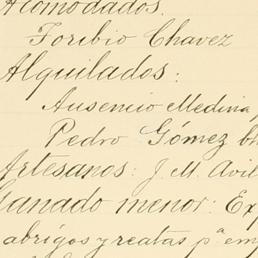 Acomodados.
Toribio Chavez
Alquilados:
Ausencio Medina,
Pedro Gómez bl
Artesanos: J. M. Avil
Ganado menor: Ex
abrigos y reatas pª em